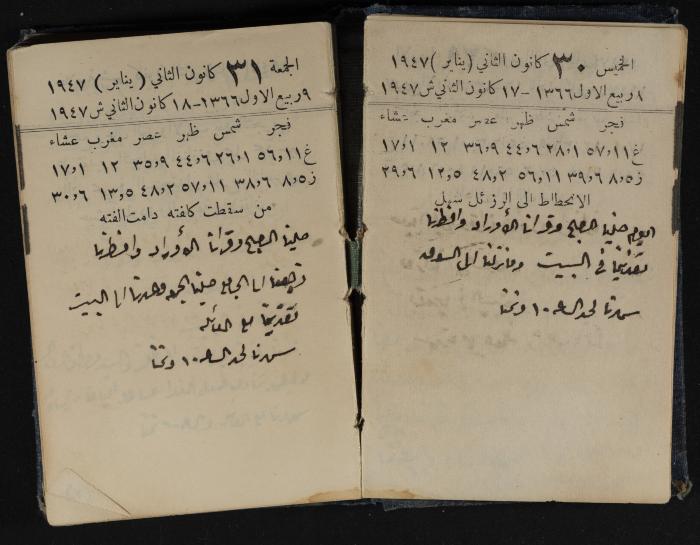 الخميس ٣٠ كانون الثاني (يناير) ١٩٤٧
٨ ربيع الاول ١٣٦٦ – ١٧ كانون الثاني ش ١٩٤٧
فجر شمس ظهر عصر مغرب عشاء
غ ١١و٥٧ ١و٢٨ ٦و٤٤ ٩و٣٦ ١٢ ١و١٧
ز ٥و٨ ٦و٣٩ ١١و٥٦ ٢و٤٨ ٥و١٢ ٦و٢٩
الانحطاط الى الرزائل سهل
اليوم صلينا الصبح وقرانا الأوراد وافطرنا
تغدينا في البيت وما نزلنا الى السوق
سهرنا لحد الساعه ١٠ ونمنا
الجمعة ٣١ كانون الثاني (يناير) ١٩٤٧
٩ ربيع الاول ١٣٦٦ – ١٨ كانون الثاني ش ١٩٤٧
فجر شمس ظهر عصر مغرب عشاء
غ ١١و٥٦ ١و٢٦ ٦و٤٤ ٩و٣٥ ١٢ ١و١٧
ز ٥و٨ ٦و٣٨ ١١و٥٧ ٢و٤٨ ٥و١٣ ٦و٣٠
من سقطت كلفته دامت الفته
صلينا الصبح وقرانا الأوراد وافطرنا
توجهنا الى الجامع صلينا الجمعه وعدنا الى البيت
تغدينا مع العائله
سهرنا لحد الساعه ١٠ ونمنا